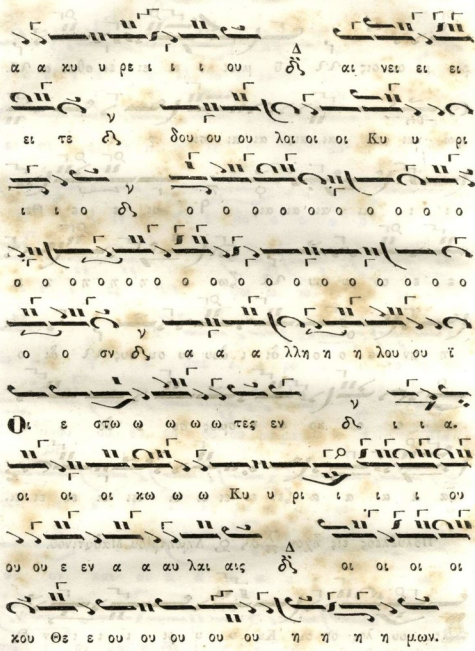 α α κυ υ ρει ι ι ι ου αι νει ει ει
ει τε δου ου ου λοι οι οι Κυ υ ρι
ι ι ο ο ο ο ο ο ο ο ο ο ο ο
ο ο ο ο ο ο ο ο ο ο ο ο ο ο ο
ο ο ον α α α λλη η η λου ου ϊ
Οι ε στω ω ω ω ω τες εν ι ι α.
οι οι οι κω ω ω Κυ υ ρι ι ι ι ου
ου ου ε εν α α αυ λαι αις οι οι οι οι
κου Θε ε ου ου ου ου ου η η η η μων.